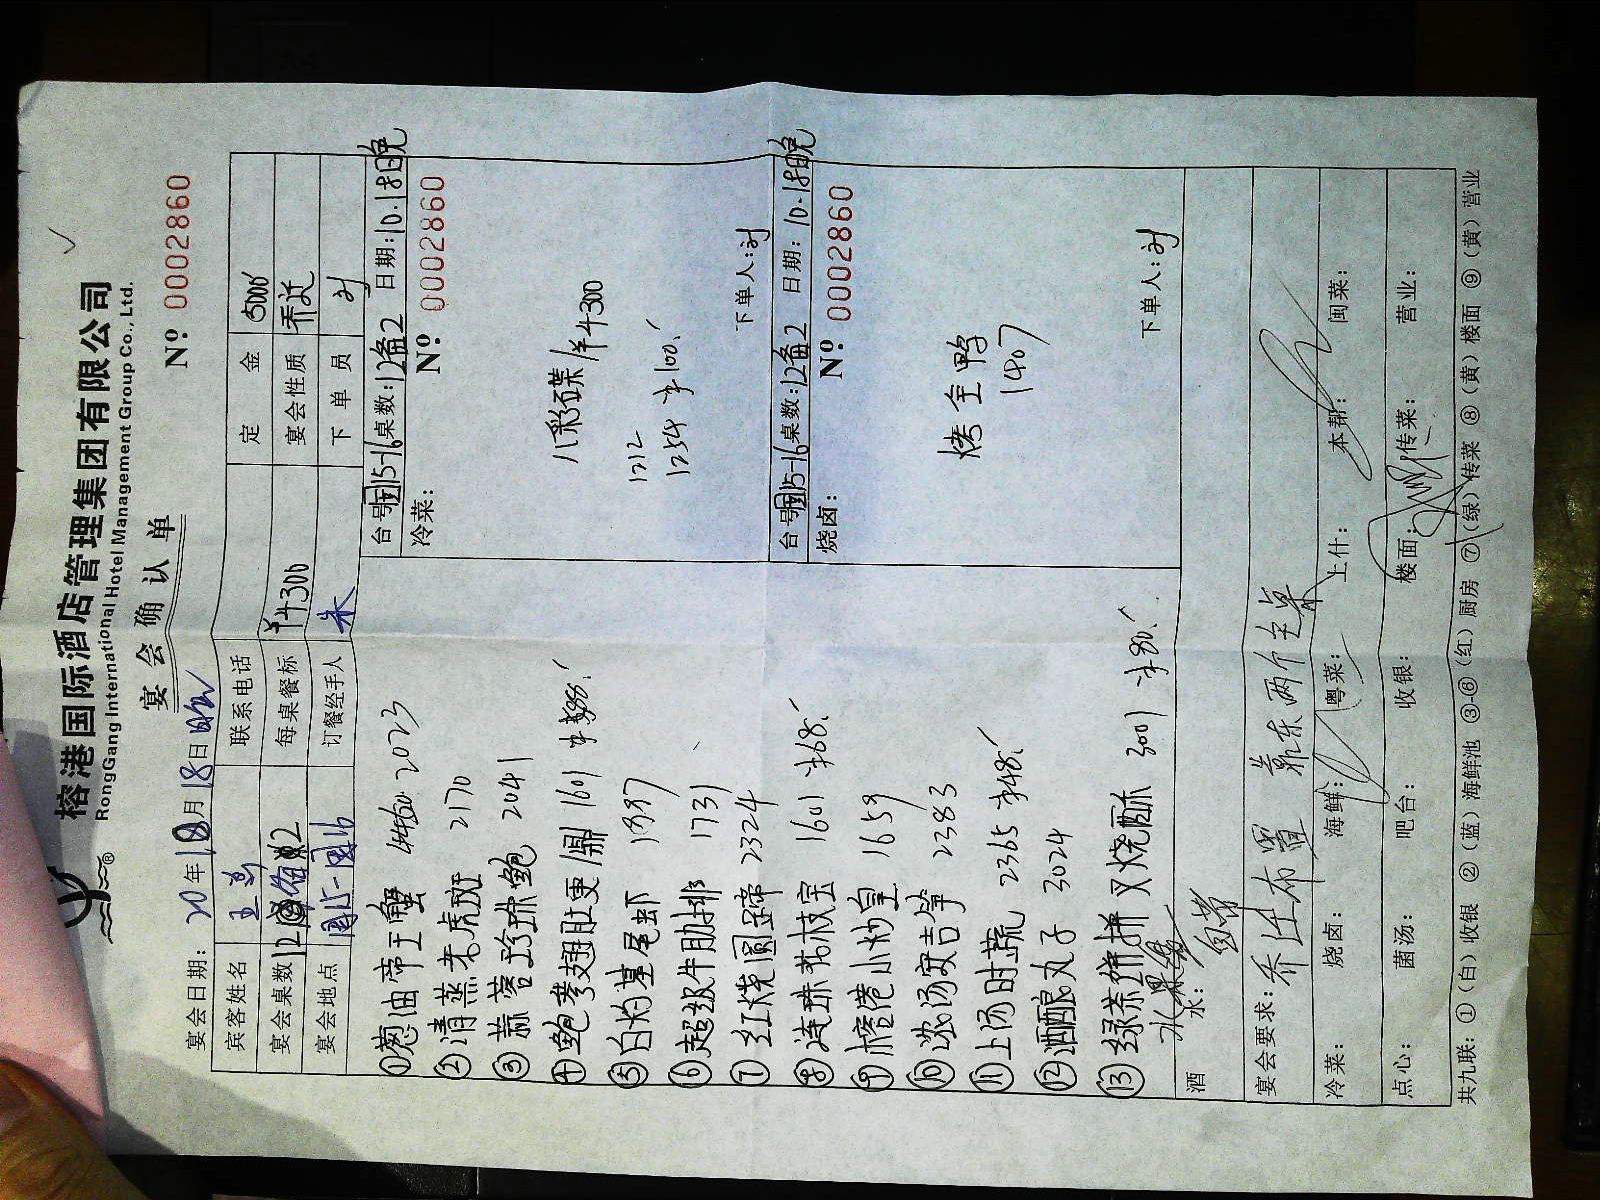 榕港国际酒店管理集团有限公司
RongGang International Hotel Management Group Co., Ltd.
®
宴会确认单
宴会日期: 20 年 10 月 18 日 晚
Nº 0002860
宾客姓名 联系电话 定金 5000
宴会桌数 12 备2 每桌餐标 ¥4300 宴会性质 乔迁
宴会地点 订餐经手人 朱 下单员 刘
台号: 15-16 桌数: 12备2 日期: 10.18日晚
冷菜: Nº 0002860
八彩碟 /羊4300
1212
1254 半100.
下单人: 刘
台号: 15-16 桌数: 12备2 日期: 10.18日晚
烧卤: Nº 0002860
烤全鸭
1407
下单人: 刘
①葱油帝王蟹 2023
②清蒸老虎斑 2170
③蒜蓉珍珠鲍 2041
④鲍参翅肚羹 1601
⑤白灼基尾虾
⑥超级牛肋排 1731
⑦红烧圆蹄 2324
⑧ 1601 半68.
⑨榕港小炒皇 1659
⑩浓汤安吉笋 2383
⑪上汤时蔬 2365 半48.
⑫酒酿丸子 3024
⑬绿茶饼拼叉烧酥 3001 半80.
水果
酒水: 自带
宴会要求: 乔迁布置 靠东两个主桌
冷菜: 烧卤: 海鲜: 粤菜: 上什: 本帮: 闽菜:
点心: 菌汤: 吧台: 收银: 楼面: 传菜: 营业:
共九联: ①(白)收银 ②(蓝)海鲜池 ③-⑥(红)厨房 ⑦(绿)传菜 ⑧(黄)楼面 ⑨(黄)营业